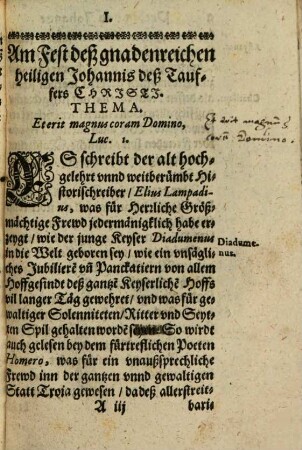 I.
Am Fest deß gnadenreichen
heiligen Johannis deß Tauf-
fers CHRISTI.
THEMA.
Et erit magnus coram Domino,
Luc. 1.
Et erit magnus
coram Domino.
ES schreibt der alt hoch-
gelehrt vnnd weitberümbt Hi-
storischreiber / Elius Lampadi-
us, was für Herrliche Größ-
mächtige Frewd jedermänigklich habe er-
zeygt / wie der junge Keyser Diadumenus
Diadume-
nus.
in die Welt geboren sey / wie ein vnsägli-
ches Jubilierē vn̄ Panckatiern von allem
Hoffgesindt deß gantz Keyserlichē Hoffs
vil langer Täg gewehret / vnd was für ge-
waltiger Solenniteten / Ritter vnd Seyt-
ten Spil gehalten wordē So wirdt
auch gelesen bey dem fürtreflichen Poeten
Homero, was für ein vnaußsprechliche
Frewd inn der gantzen vnnd gewaltigen
Statt Troia gewesen / da deß allerstreit-
A iij
bari-